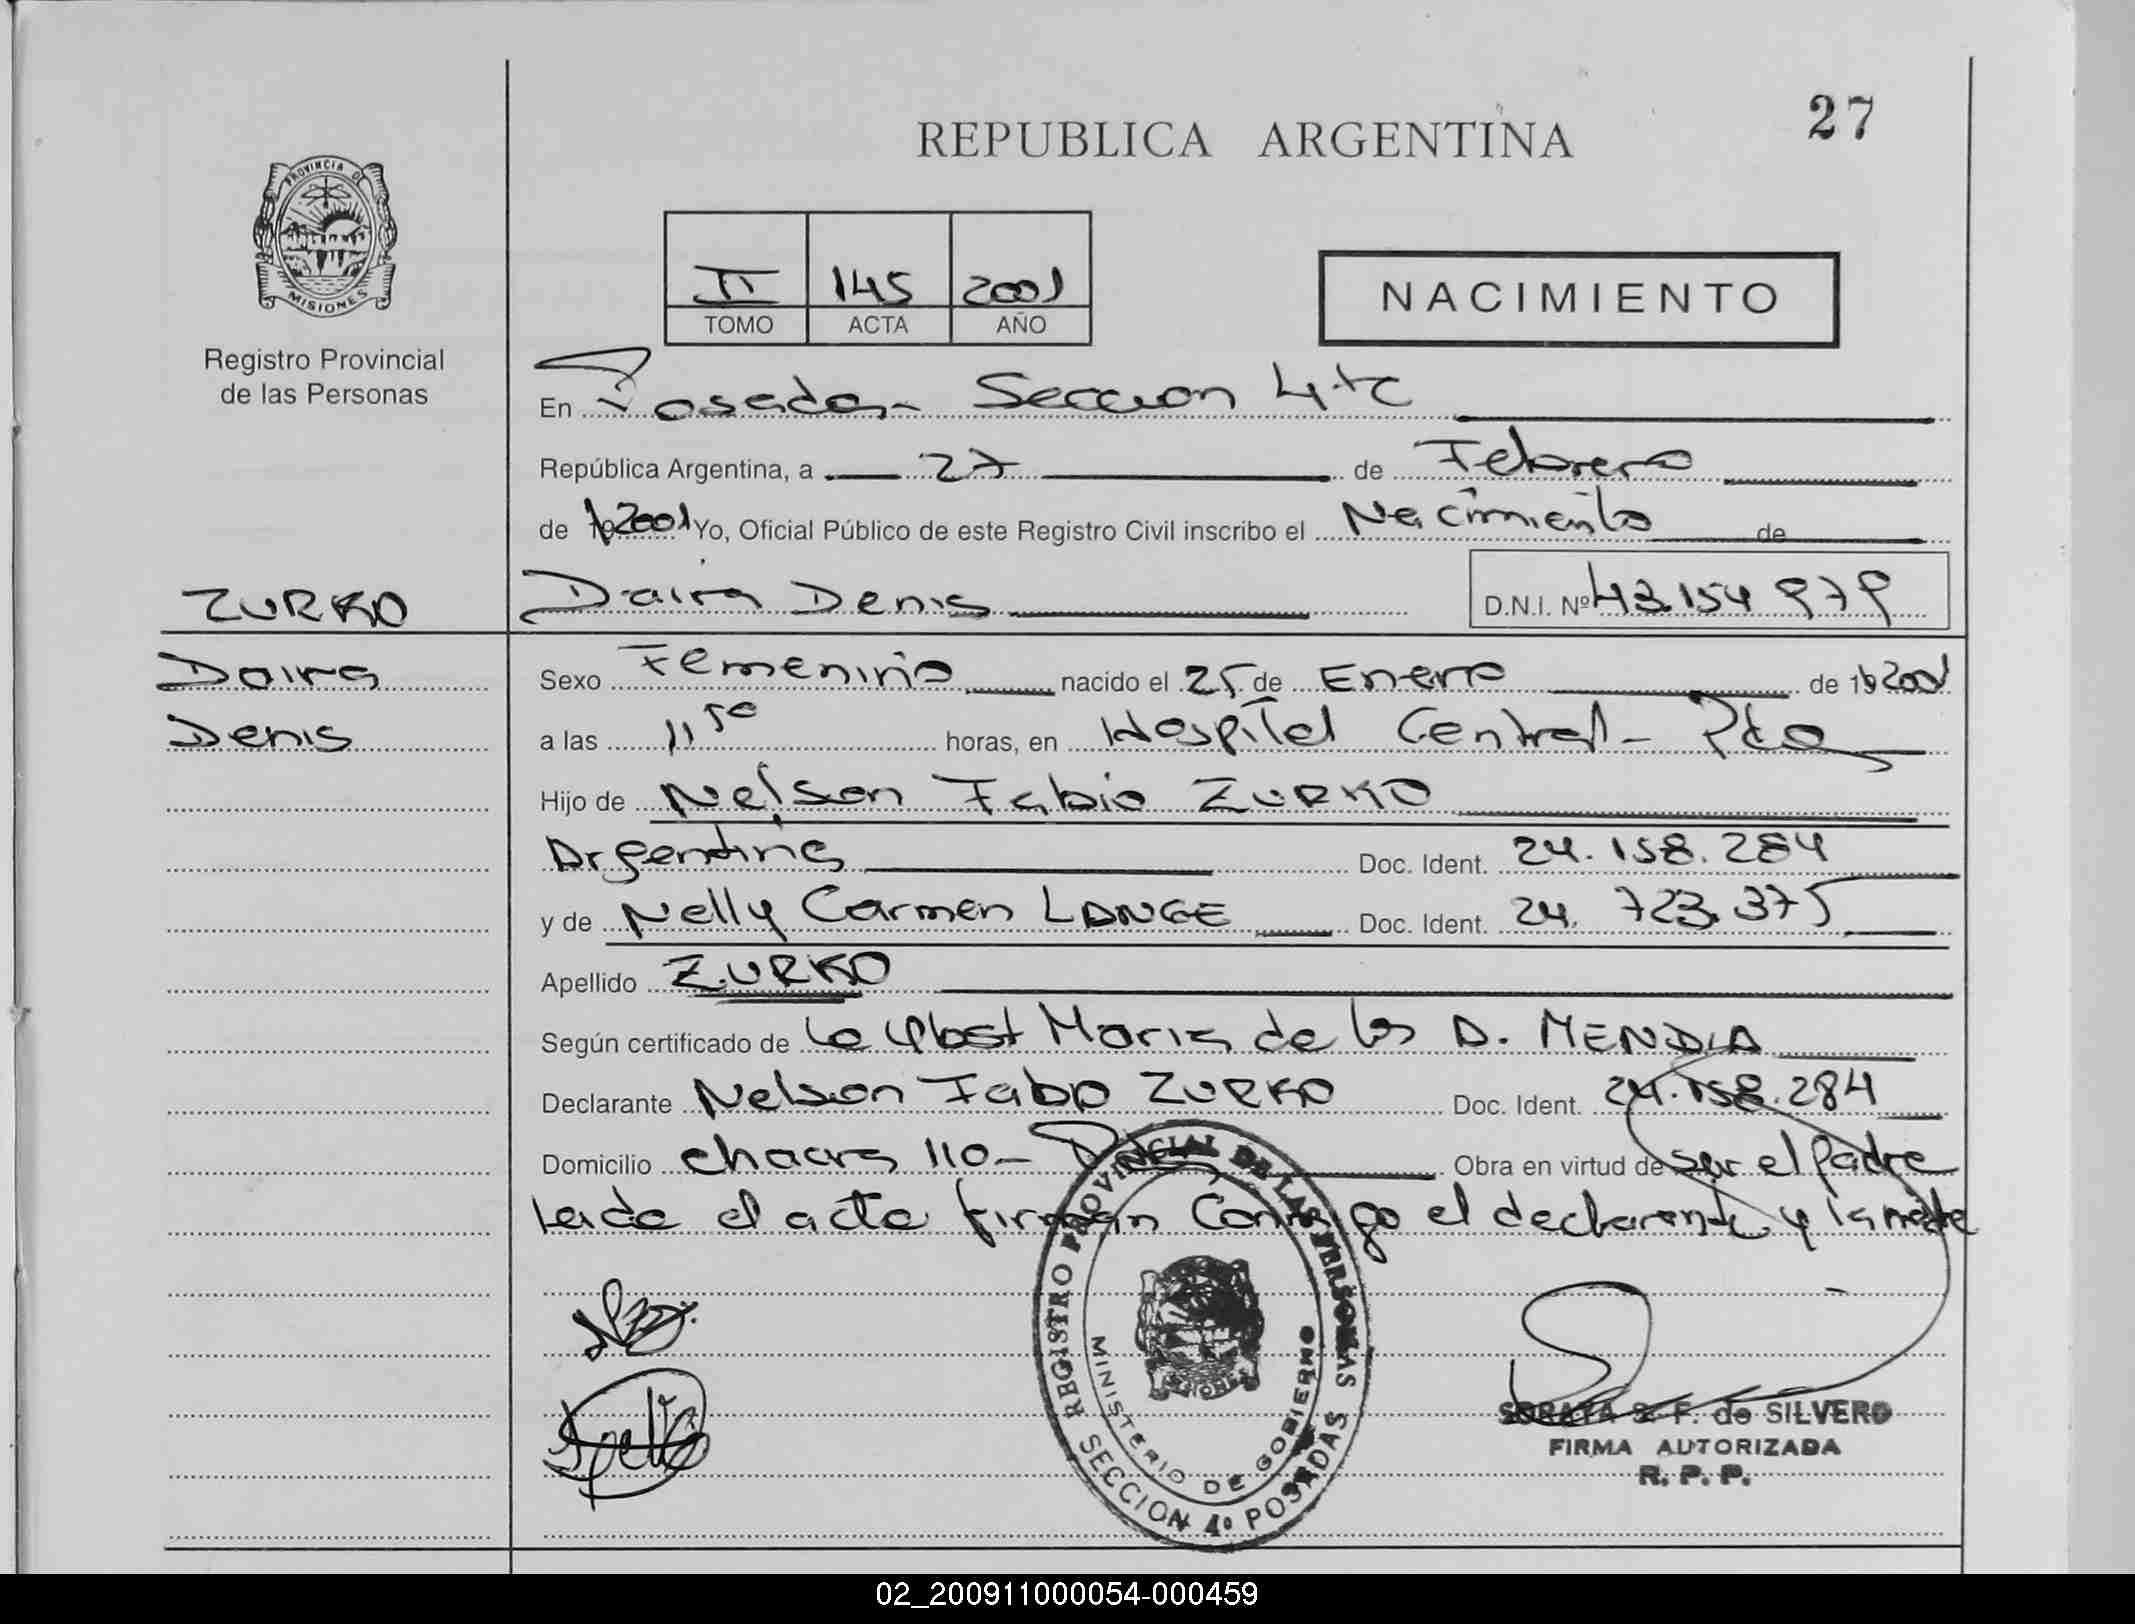 REPUBLICA ARGENTINA
27
PROVINCIA DE
MISIONES
Registro Provincial
de las Personas
II 145 2001
TOMO ACTA AÑO
NACIMIENTO
En Posadas - Seccion 4ta
República Argentina, a 27 de Febrero
de 19 2001 Yo, Oficial Público de este Registro Civil inscribo el Nacimiento de
ZURKO
Daira Denis D.N.I. Nº 43.154 979
Daira
Denis
Sexo Femenino nacido el 25 de Enero de 19 2001
a las 11 50 horas, en Hospital Central - Pdas
Hijo de Nelson Fabio ZURKO
Argentina Doc. Ident. 24.158.284
y de Nelly Carmen LANGE Doc. Ident. 24.723.375
Apellido ZURKO
Según certificado de la Obst Maria de los A. MENDIA
Declarante Nelson Fabio ZURKO Doc. Ident. 24.158.284
Domicilio chacra 110 - Pdas Obra en virtud de ser el Padre
Leida el acta firman Conmigo el declarante y la madre
REGISTRO PROVINCIAL DE LAS PERSONAS
MINISTERIO DE GOBIERNO
SECCION 4º POSADAS
SORAYA S. F. de SILVERO
FIRMA AUTORIZADA
R. P. P.
02_200911000054-000459